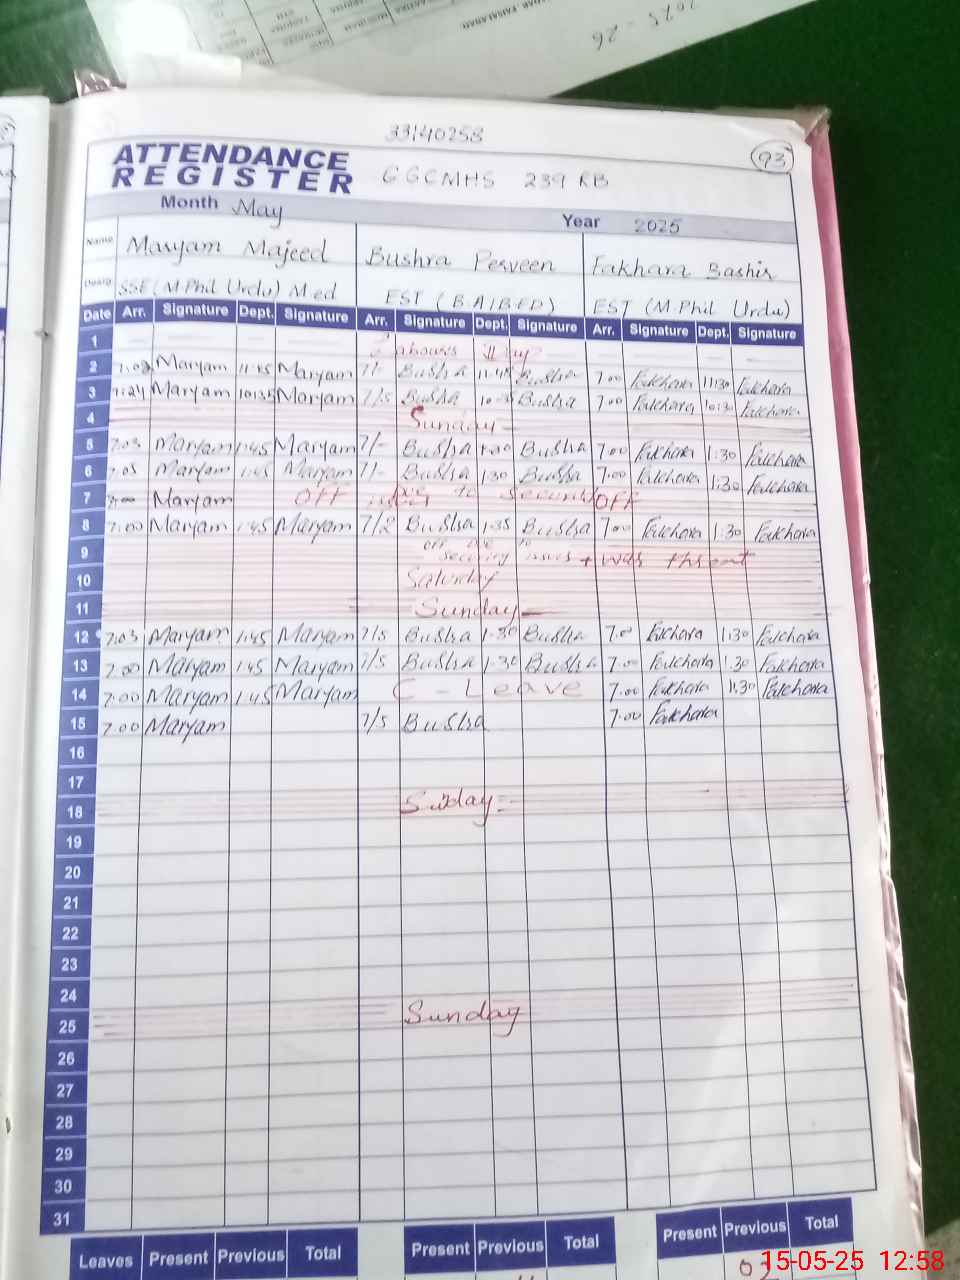 2025 - 26
33140258
93
ATTENDANCE
REGISTER GGCMHS 239 RB
Month May Year 2025
Name Maryam Majeed Bushra Perveen Fakhara Bashir
Desig SSE (M.Phil Urdu) M.ed EST (B.A|B.ED) EST (M.Phil Urdu)
Date Arr. Signature Dept. Signature Arr. Signature Dept. Signature Arr. Signature Dept. Signature
1 labours Day
2 7.02 Maryam 11.45 Maryam 7/- Bushra 11.45 Bushra 7.00 Fakhara 11:30 Fakhara
3 7:24 Maryam 10:35 Maryam 7/5 Bushra 10-3 Bushra 7.00 Fakhara 10:30 Fakhara
4 Sunday
5 7.03 Maryam 1:45 Maryam 7/- Bushra Bushra 7.00 Fakhara 1:30 Fakhara
6 7.05 Maryam 1:45 Maryam 7/- Bushra 1.30 Bushra 7.00 Fakhara 1:30 Fakhara
7 Maryam OFF due to security OFF
8 7:00 Maryam 1:45 Maryam 7/2 Bushra 1-35 Bushra 7.00 Fakhara 1:30 Fakhara
9 off due to
security issues + was
10 Saturday
11 Sunday
12 7.03 Maryam 1:45 Maryam 7/5 Bushra 1-30 Bushra 7.00 Fakhara 1:30 Fakhara
13 7.00 Maryam 1:45 Maryam 7/5 Bushra 1-30 Bushra 7.00 Fakhara 1.30 Fakhara
14 7:00 Maryam 1:45 Maryam C - Leave 7.00 Fakhara 1:30 Fakhara
15 7.00 Maryam 7/5 Bushra 7.00 Fakhara
16
17
18 Sunday
19
20
21
22
23
24
25 Sunday
26
27
28
29
30
31
Leaves Present Previous Total Present Previous Total Present Previous Total
15-05-25 12:58